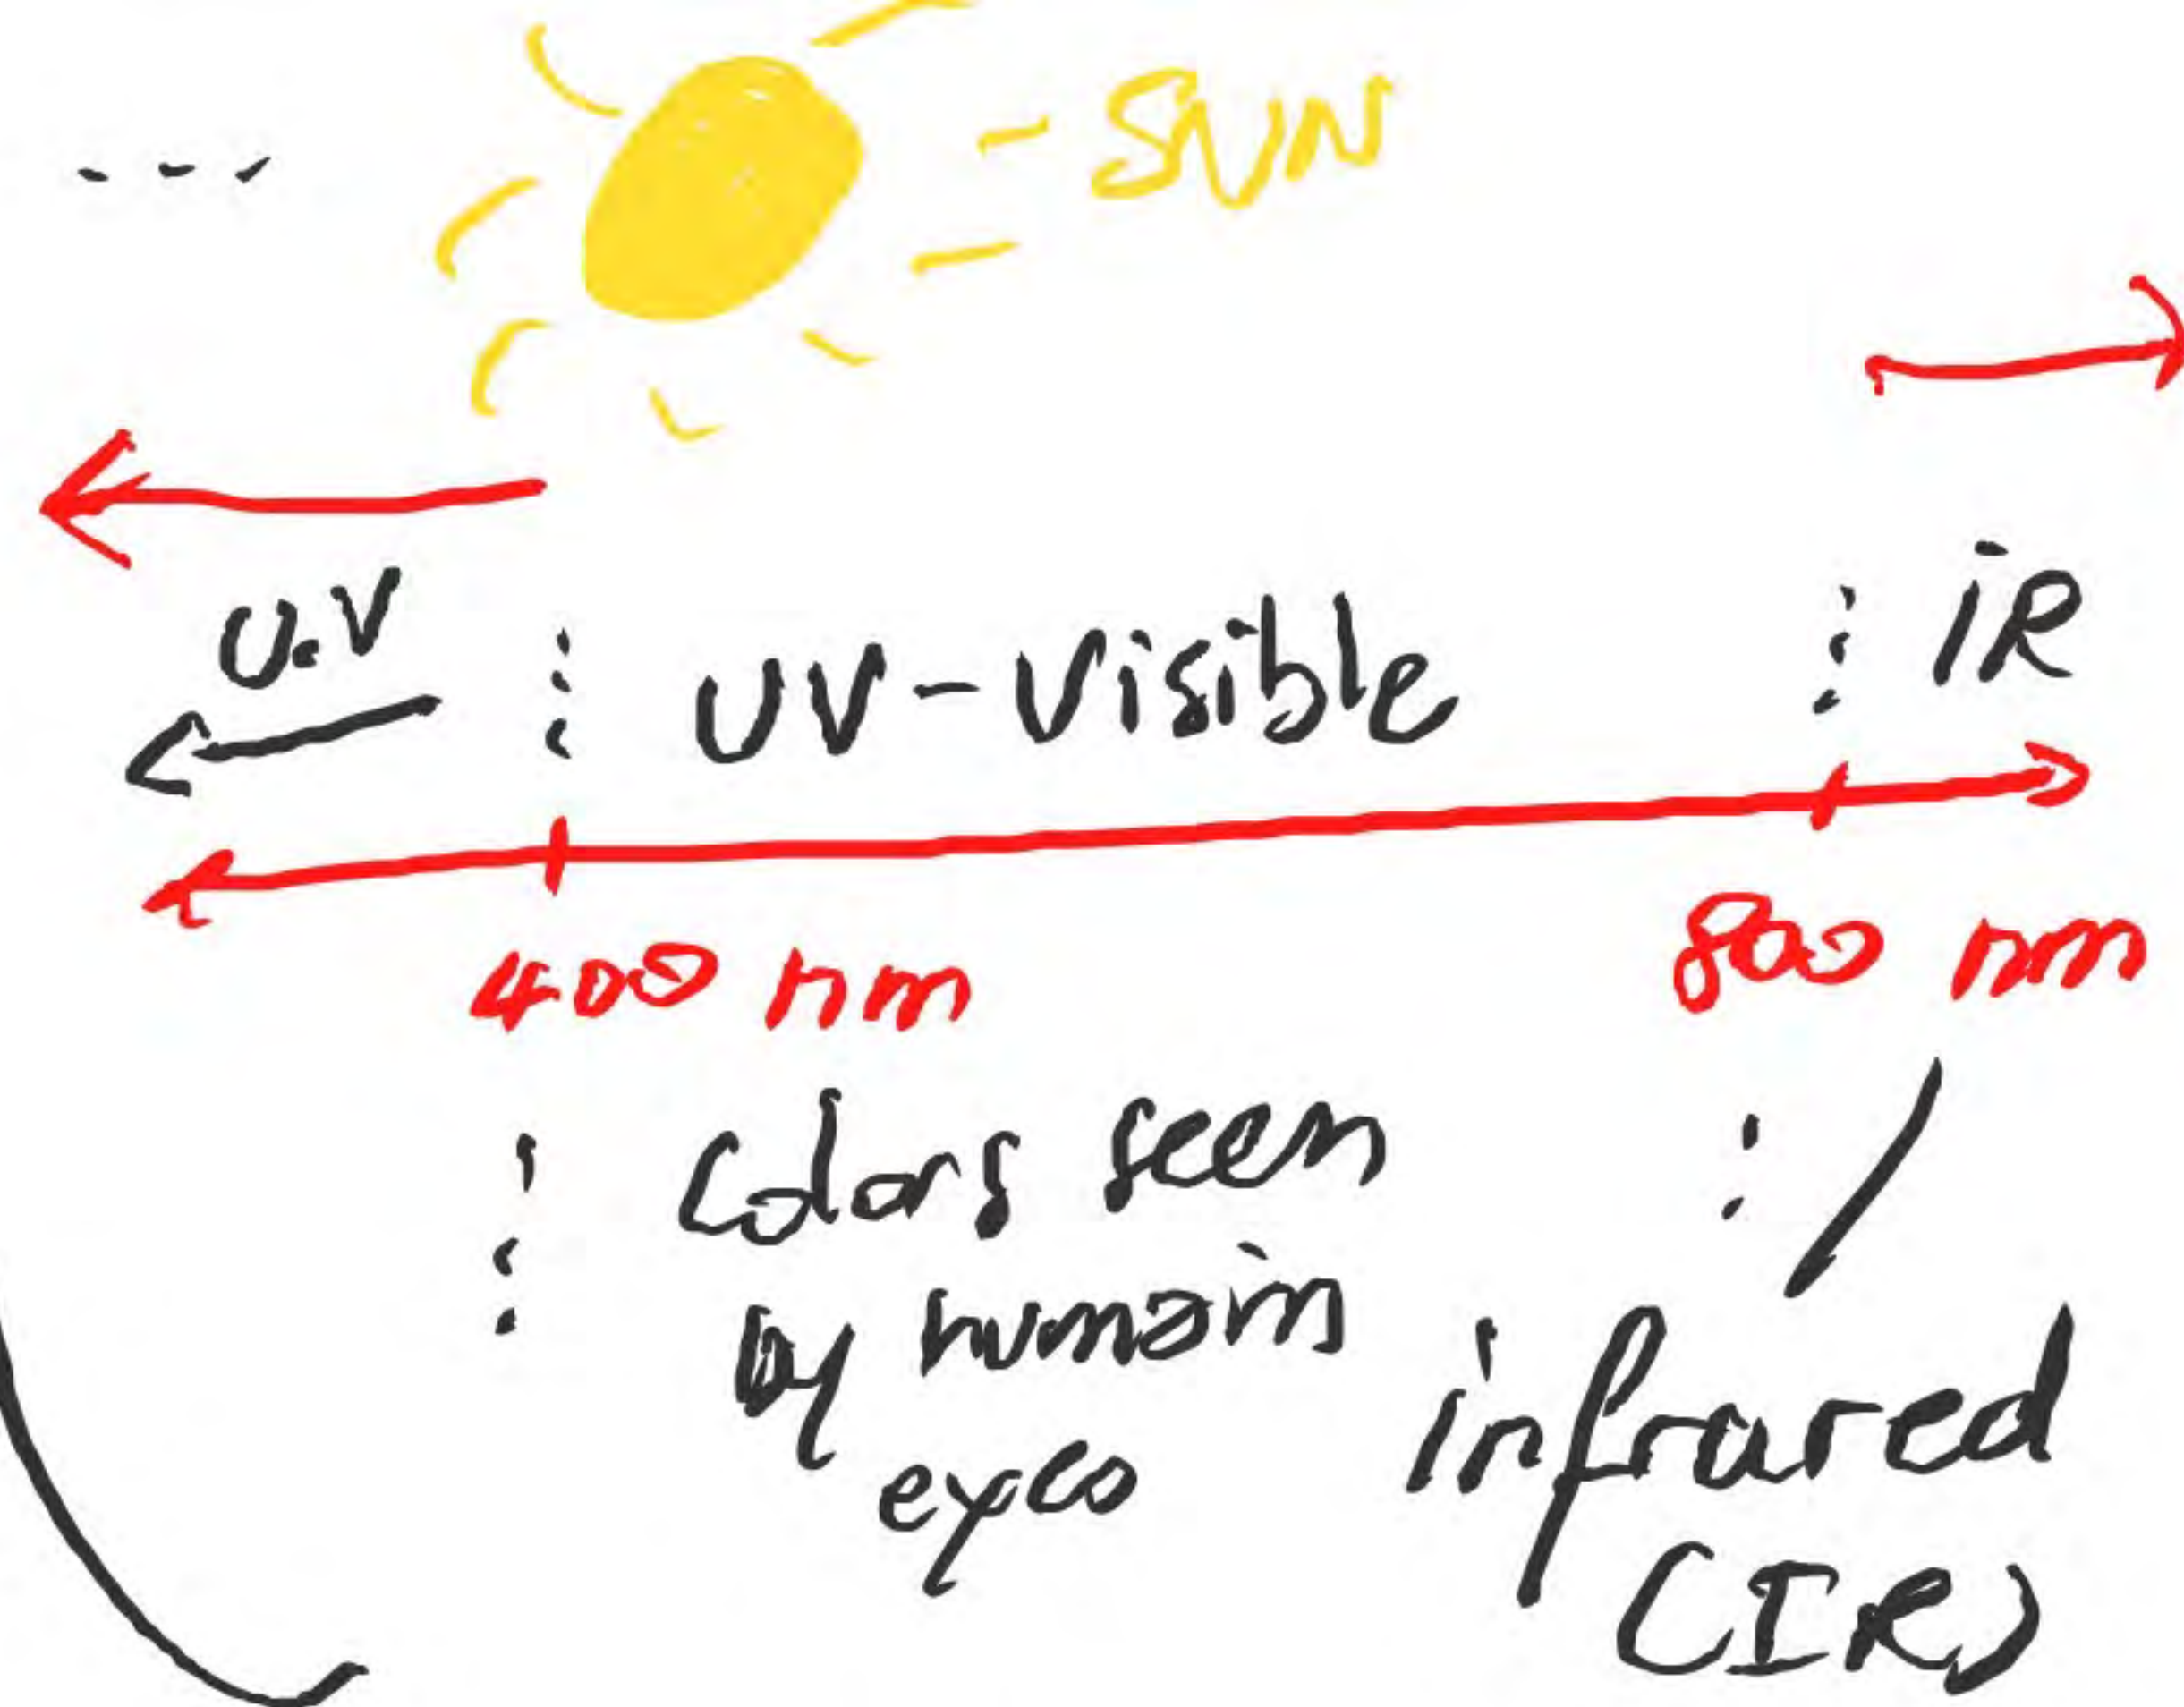 - SUN
U.V
UV-Visible
iR
400 nm
800 nm
Colors seen
by humain
eyes
infrared
(IR)